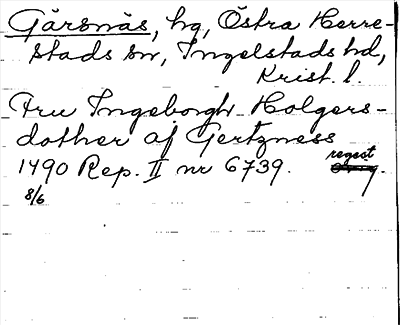 Gärsnäs, hg, Östra Herre-
stads sn, Ingelstads hd,
Krist. l.
Fru Ingeborgh Holgers-
dother af Gertzness
1490 Rep. II nr 6739. regest.
8/6